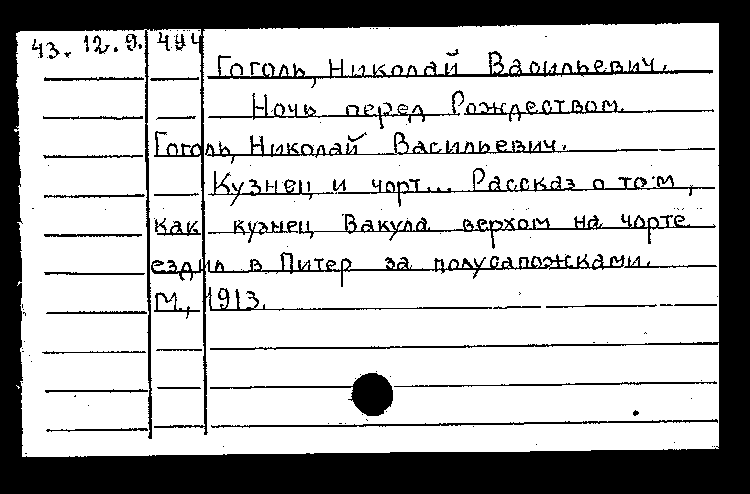 43. 12. 9. 494
Гоголь, Николай Васильевич.
Ночь перед Рождеством.
Гоголь, Николай Васильевич.
Кузнец и чорт... Рассказ о том,
как кузнец Вакула верхом на чорте
ездил в Питер за полусапожками.
М., 1913.